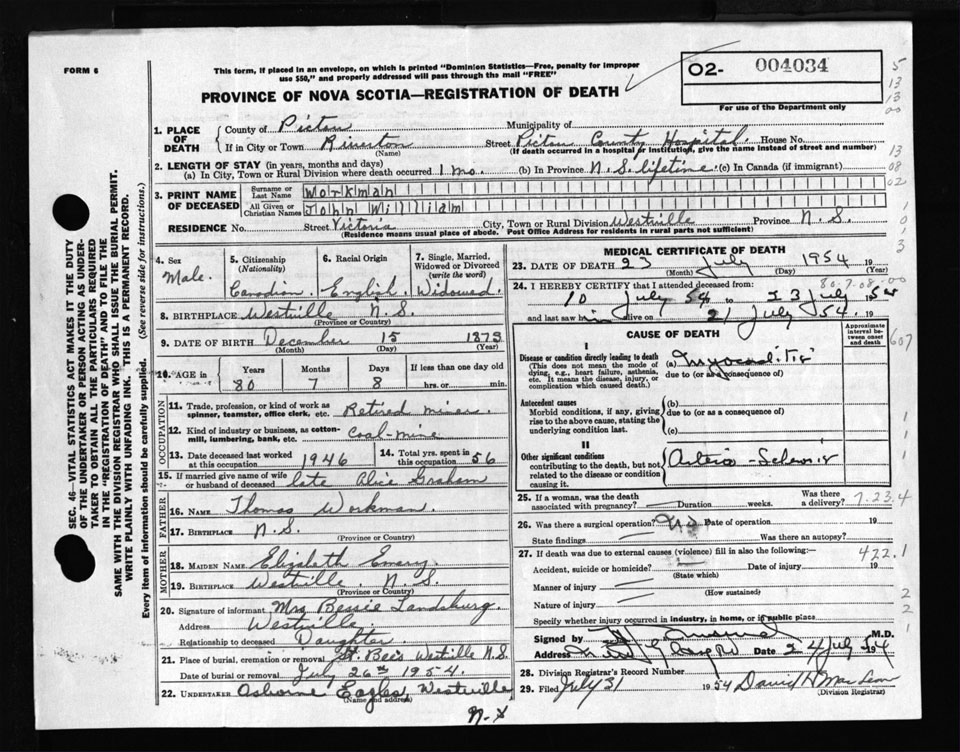 FORM 6
This form, if placed in an envelope, on which is printed "Dominion Statistics—Free, penalty for improper
use $50," and properly addressed will pass through the mail "FREE"
PROVINCE OF NOVA SCOTIA—REGISTRATION OF DEATH
02- 004034
For use of the Department only
5
13
13
00
13
08
02
SEC. 46—VITAL STATISTICS ACT MAKES IT THE DUTY
OF THE UNDERTAKER OR PERSON ACTING AS UNDER-
TAKER TO OBTAIN ALL THE PARTICULARS REQUIRED
IN THE "REGISTRATION OF DEATH" AND TO FILE THE
SAME WITH THE DIVISION REGISTRAR WHO SHALL ISSUE THE BURIAL PERMIT.
WRITE PLAINLY WITH UNFADING INK. THIS IS A PERMANENT RECORD.
Every item of information should be carefully supplied. (See reverse side for instructions.)
1. PLACE OF DEATH
County of Pictou Municipality of
If in City or Town Riverton Street Pictou County Hospital. House No.
(Name) (If death occurred in a hospital or institution, give the name instead of street and number)
2. LENGTH OF STAY (in years, months and days)
(a) In City, Town or Rural Division where death occurred 1 mo. (b) In Province N.S. lifetime. (c) In Canada (if immigrant)
3. PRINT NAME OF DECEASED
Surname or Last Name Workman
All Given or Christian Names John William
RESIDENCE No. Street Victoria City, Town or Rural Division Westville Province N.S.
(Residence means usual place of abode. Post Office Address for residents in rural parts not sufficient)
4. Sex
Male.
5. Citizenship
(Nationality)
Canadian
6. Racial Origin
English.
7. Single, Married,
Widowed or Divorced
(write the word)
Widowed.
8. BIRTHPLACE Westville N.S.
(Province or Country)
9. DATE OF BIRTH December 15 1873
(Month) (Day) (Year)
10. AGE in Years Months Days If less than one day old
80 7 8 hrs. or min.
OCCUPATION
11. Trade, profession, or kind of work as
spinner, teamster, office clerk, etc. Retired miner.
12. Kind of industry or business, as cotton-
mill, lumbering, bank, etc. Coal-mine
13. Date deceased last worked
at this occupation 1946
14. Total yrs. spent in
this occupation 56
15. If married give name of wife
or husband of deceased late Alice Graham
FATHER
16. NAME Thomas Workman.
17. BIRTHPLACE N.S.
(Province or Country)
MOTHER
18. MAIDEN NAME Elizabeth Emery.
19. BIRTHPLACE Westville. N.S.
(Province or Country)
20. Signature of informant Mrs Bessie Landsburg.
Address Westville.
Relationship to deceased Daughter.
21. Place of burial, cremation or removal St. Bees Westville N.S.
Date of burial or removal July 26th 1954.
22. UNDERTAKER Osborne Eagles, Westville
(Name and address)
MEDICAL CERTIFICATE OF DEATH
23. DATE OF DEATH 23 July 1954
(Month) (Day) (Year)
24. I HEREBY CERTIFY that I attended deceased from:
80.7.08.00
10 July 54 to 23 July 1954
and last saw him alive on 21 July 54. 19
CAUSE OF DEATH
Approximate
interval be-
tween onset
and death
607
I
Disease or condition directly leading to death
(This does not mean the mode of
dying, e.g., heart failure, asthenia,
etc. It means the disease, injury, or
complication which caused death.)
(a) Myocarditis
due to (or as a consequence of)
Antecedent causes
Morbid conditions, if any, giving
rise to the above cause, stating the
underlying condition last.
(b)
due to (or as a consequence of)
(c)
II
Other significant conditions
contributing to the death, but not
related to the disease or condition
causing it.
25. If a woman, was the death
associated with pregnancy? Duration weeks. Was there
a delivery?
7.23.4
26. Was there a surgical operation? No Date of operation 19
State findings Was there an autopsy?
27. If death was due to external causes (violence) fill in also the following:—
422.1
Accident, suicide or homicide? Date of injury 19
(State which)
Manner of injury
(How sustained)
Nature of injury
Specify whether injury occurred in industry, in home, or in public place
Signed by M.D.
Address Date 24 July 54
28. Division Registrar's Record Number
29. Filed July 31 1954 David H MacLean
(Division Registrar)